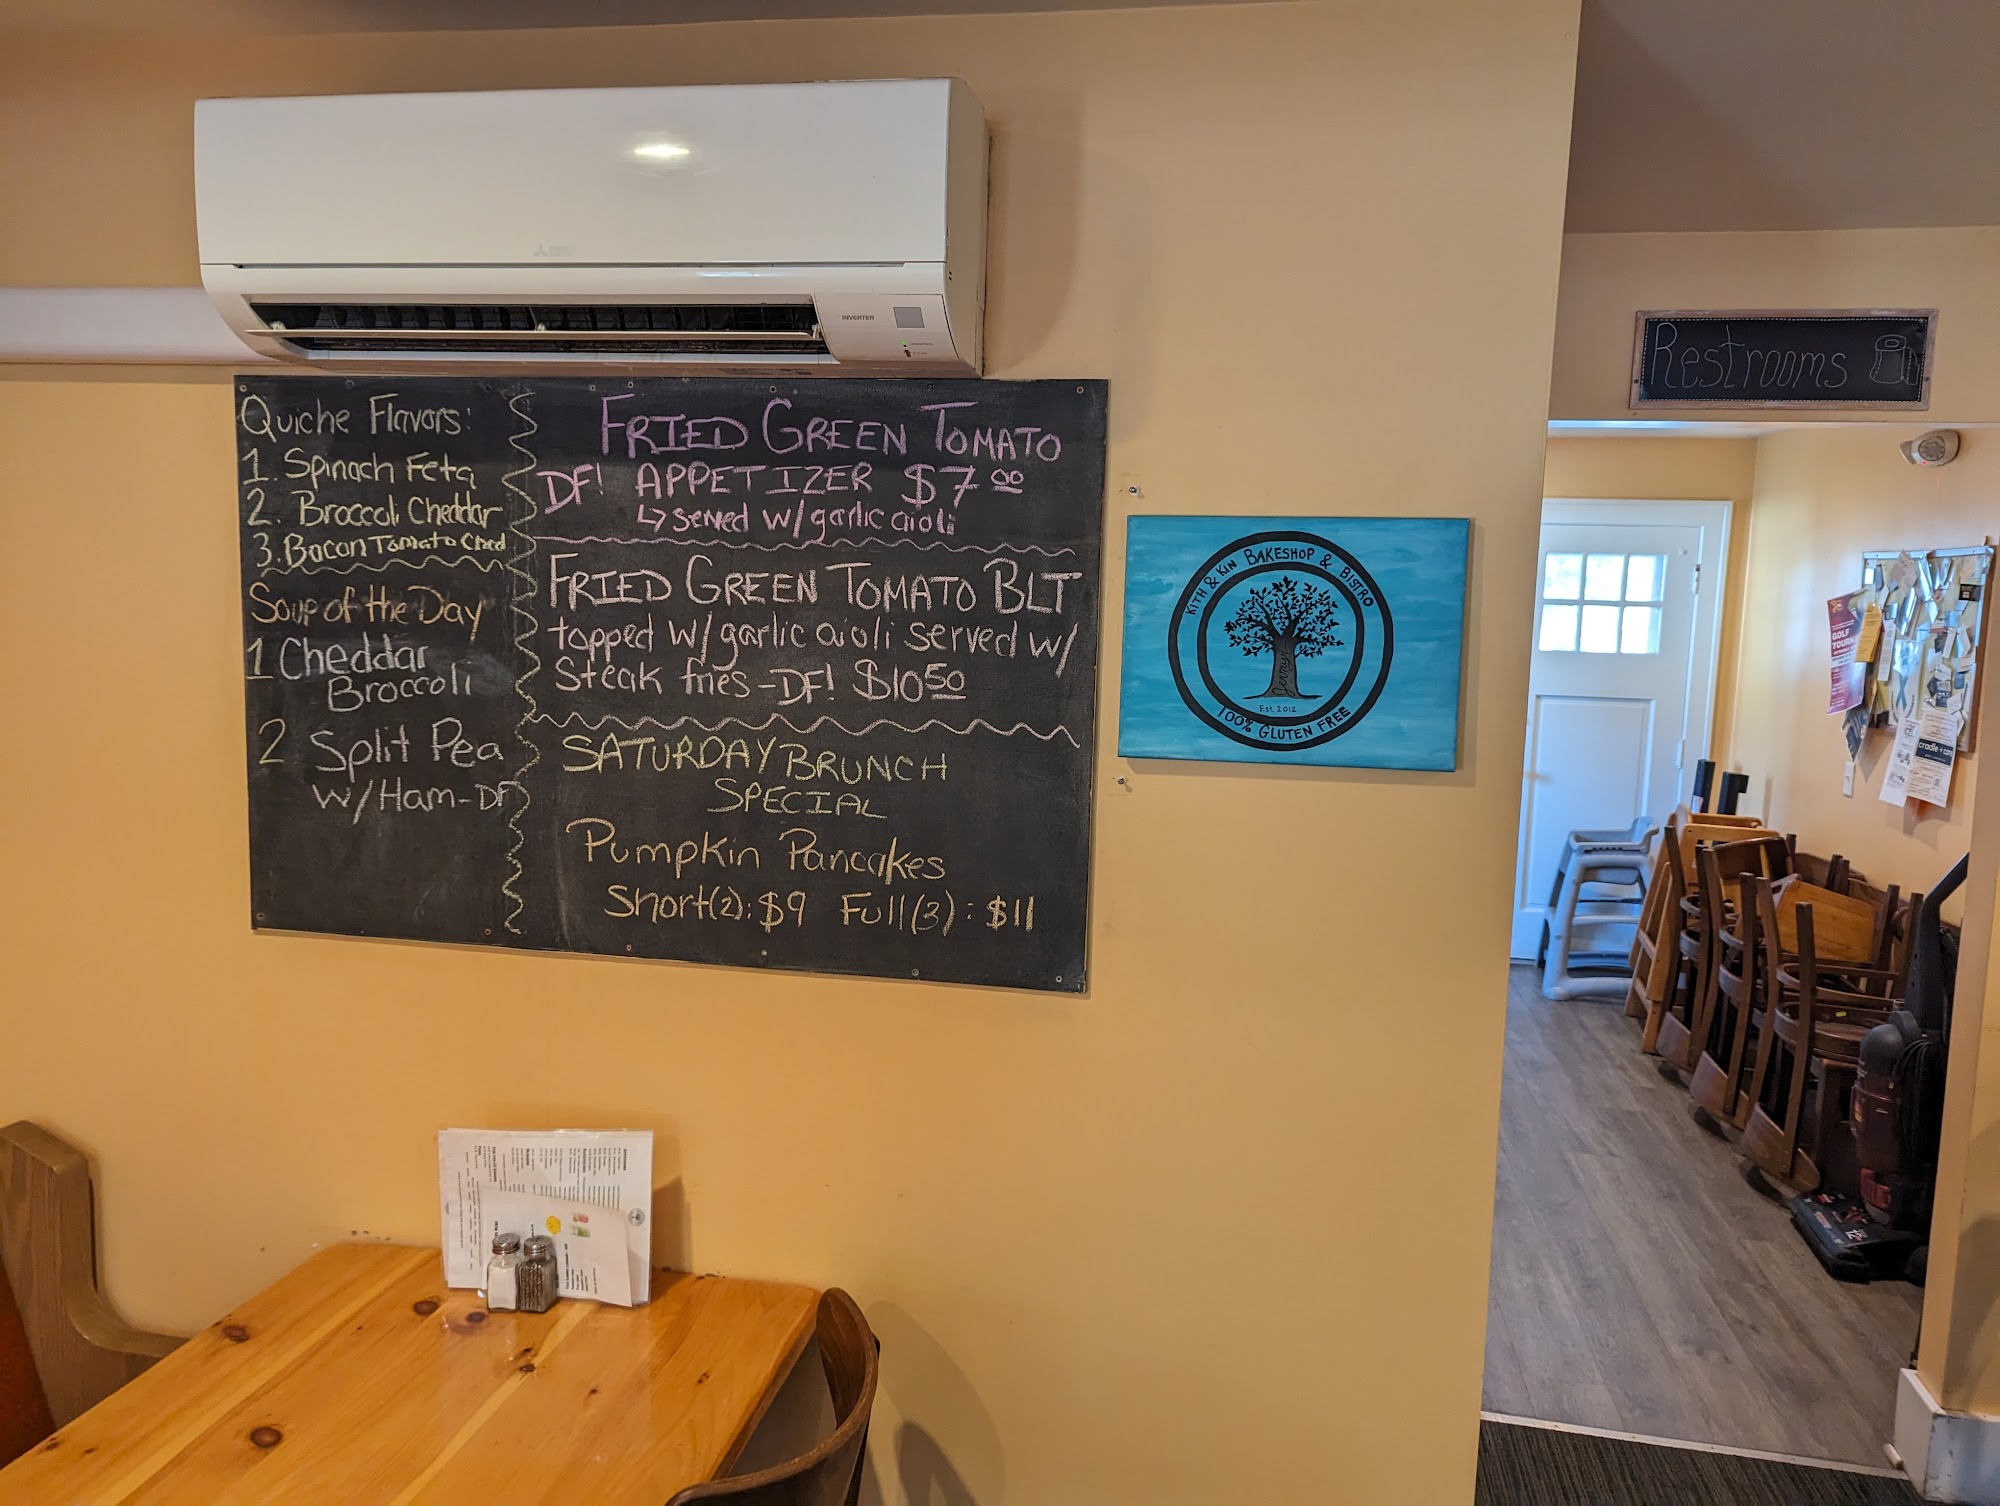 INVERTER
Quiche Flavors:
1. Spinach Feta
2. Broccoli Cheddar
3. Bacon Tomato Ched
Soup of the Day
1 Cheddar
Broccoli
2 Split Pea
w/Ham-DF
FRIED GREEN TOMATO
DF! APPETIZER $7.00
↳ served w/garlic aioli
FRIED GREEN TOMATO BLT
topped w/garlic aioli served w/
Steak fries-DF! $10.50
SATURDAY BRUNCH
SPECIAL
Pumpkin Pancakes
Short(2): $9 Full(3): $11
KITH & KIN BAKESHOP & BISTRO
Est. 2012
100% GLUTEN FREE
Restrooms
GOLF
cradle